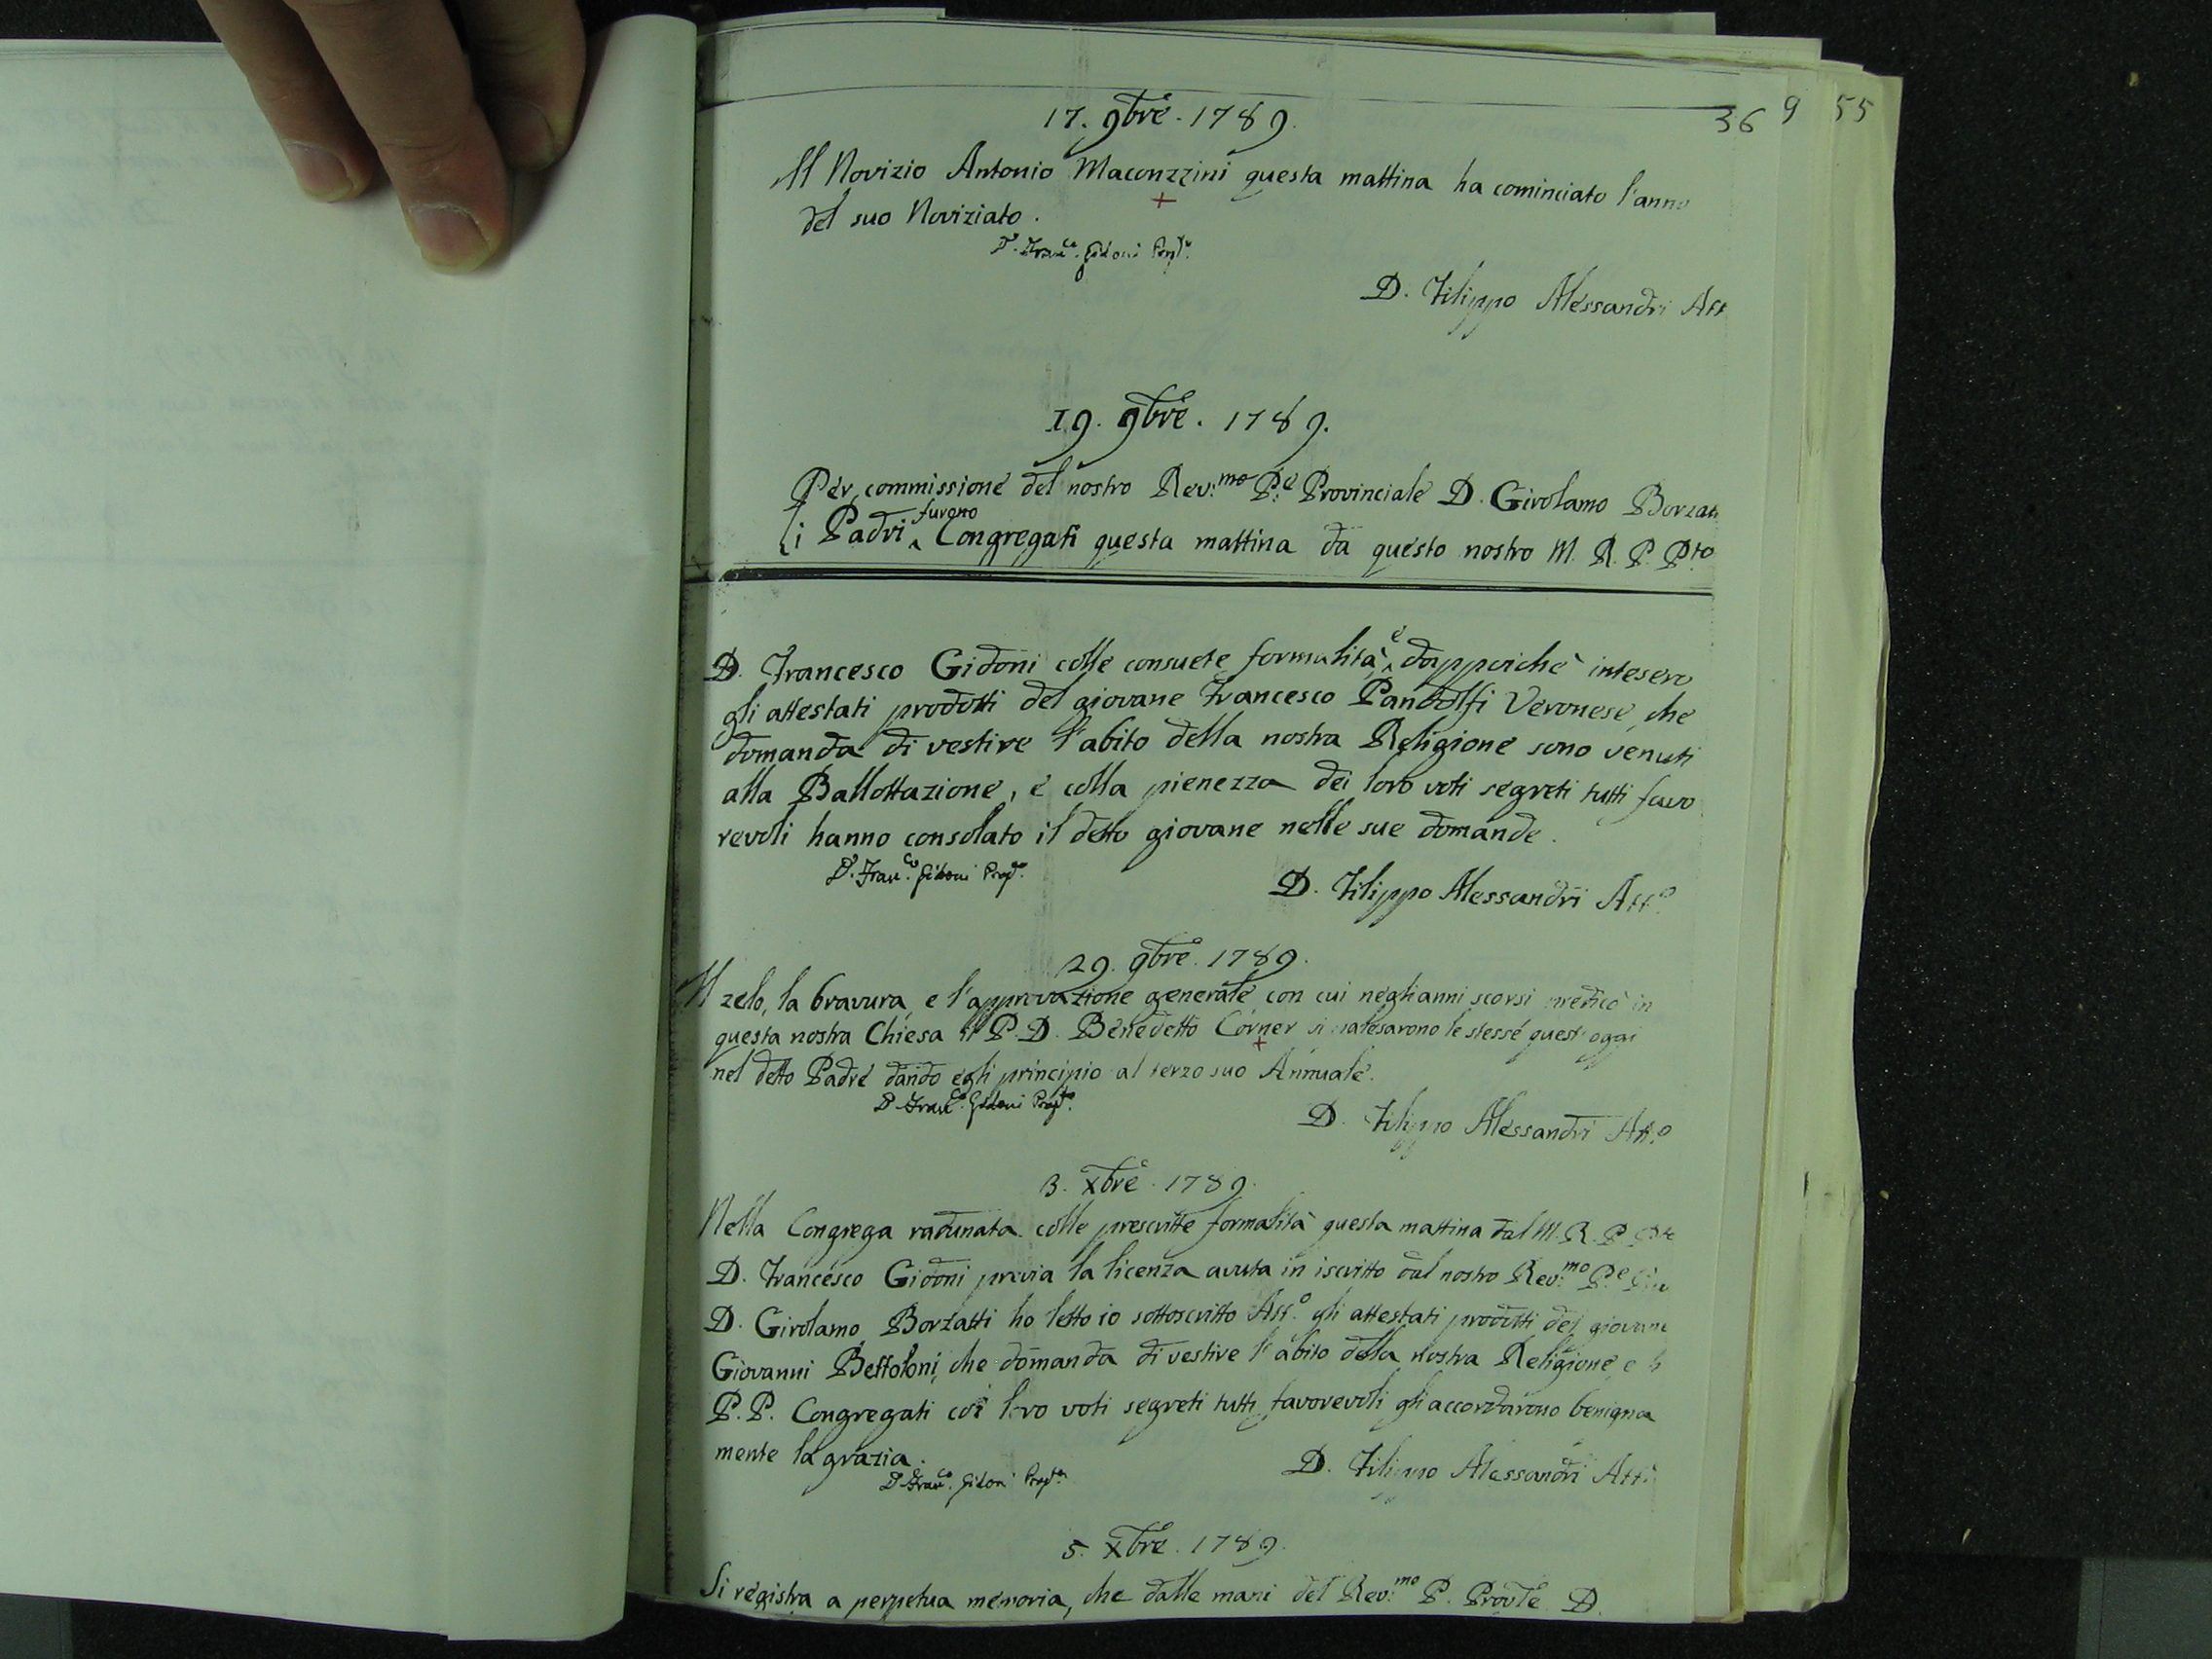 36 9 55
17. 9bre. 1789.
Il Novizio Antonio Maconzzini questa mattina ha cominciato l'anno
del suo Noviziato.
D. Franco. Gidoni Propto.
D. Filippo Alessandri Att
19. 9bre. 1789.
Per commissione del nostro Rev:mo P:e Provinciale D. Girolamo Borzatti
li Padri furono Congregati questa mattina da questo nostro M. R. P. P:to
D. Francesco Gidoni colle consuete formalità, e dappoichè intesero
gli attestati prodotti del giovane Francesco Pandolfi Veronese, che
domanda di vestire l'abito della nostra Religione sono venuti
alla Ballottazione, e colla pienezza dei loro voti segreti tutti favo
revoli hanno consolato il detto giovane nelle sue domande.
D. Franco. Gidoni Propto.
D. Filippo Alessandri Att.o
29. 9bre. 1789.
Il zelo, la bravura, e l'approvazione generale con cui negli anni scorsi predicò in
questa nostra Chiesa il P. D. Benedetto Corner si palesarono le stesse quest'oggi
nel detto Padre dando egli principio al terzo suo Annuale.
D. Franco. Gidoni Propto.
D. Filippo Alessandri Att.o
3. Xbre. 1789.
Nella Congrega radunata colle prescritte formalità questa mattina dal M. R. P.
D. Francesco Gidoni previa la licenza avuta in iscritto dal nostro Rev:mo P:e
D. Girolamo Borzatti ho letto io sottoscritto Att.o gli attestati prodotti del giovane
Giovanni Bettoloni, che domanda di vestire l'abito della nostra Religione e li
P.P. Congregati coi loro voti segreti tutti favorevoli gli accordarono benigna
mente la grazia.
D. Franco. Gidoni Propto.
D. Filippo Alessandri Att.o
5. Xbre. 1789.
Si registra a perpetua memoria, che dalle mani del Rev:mo P. Provle D.